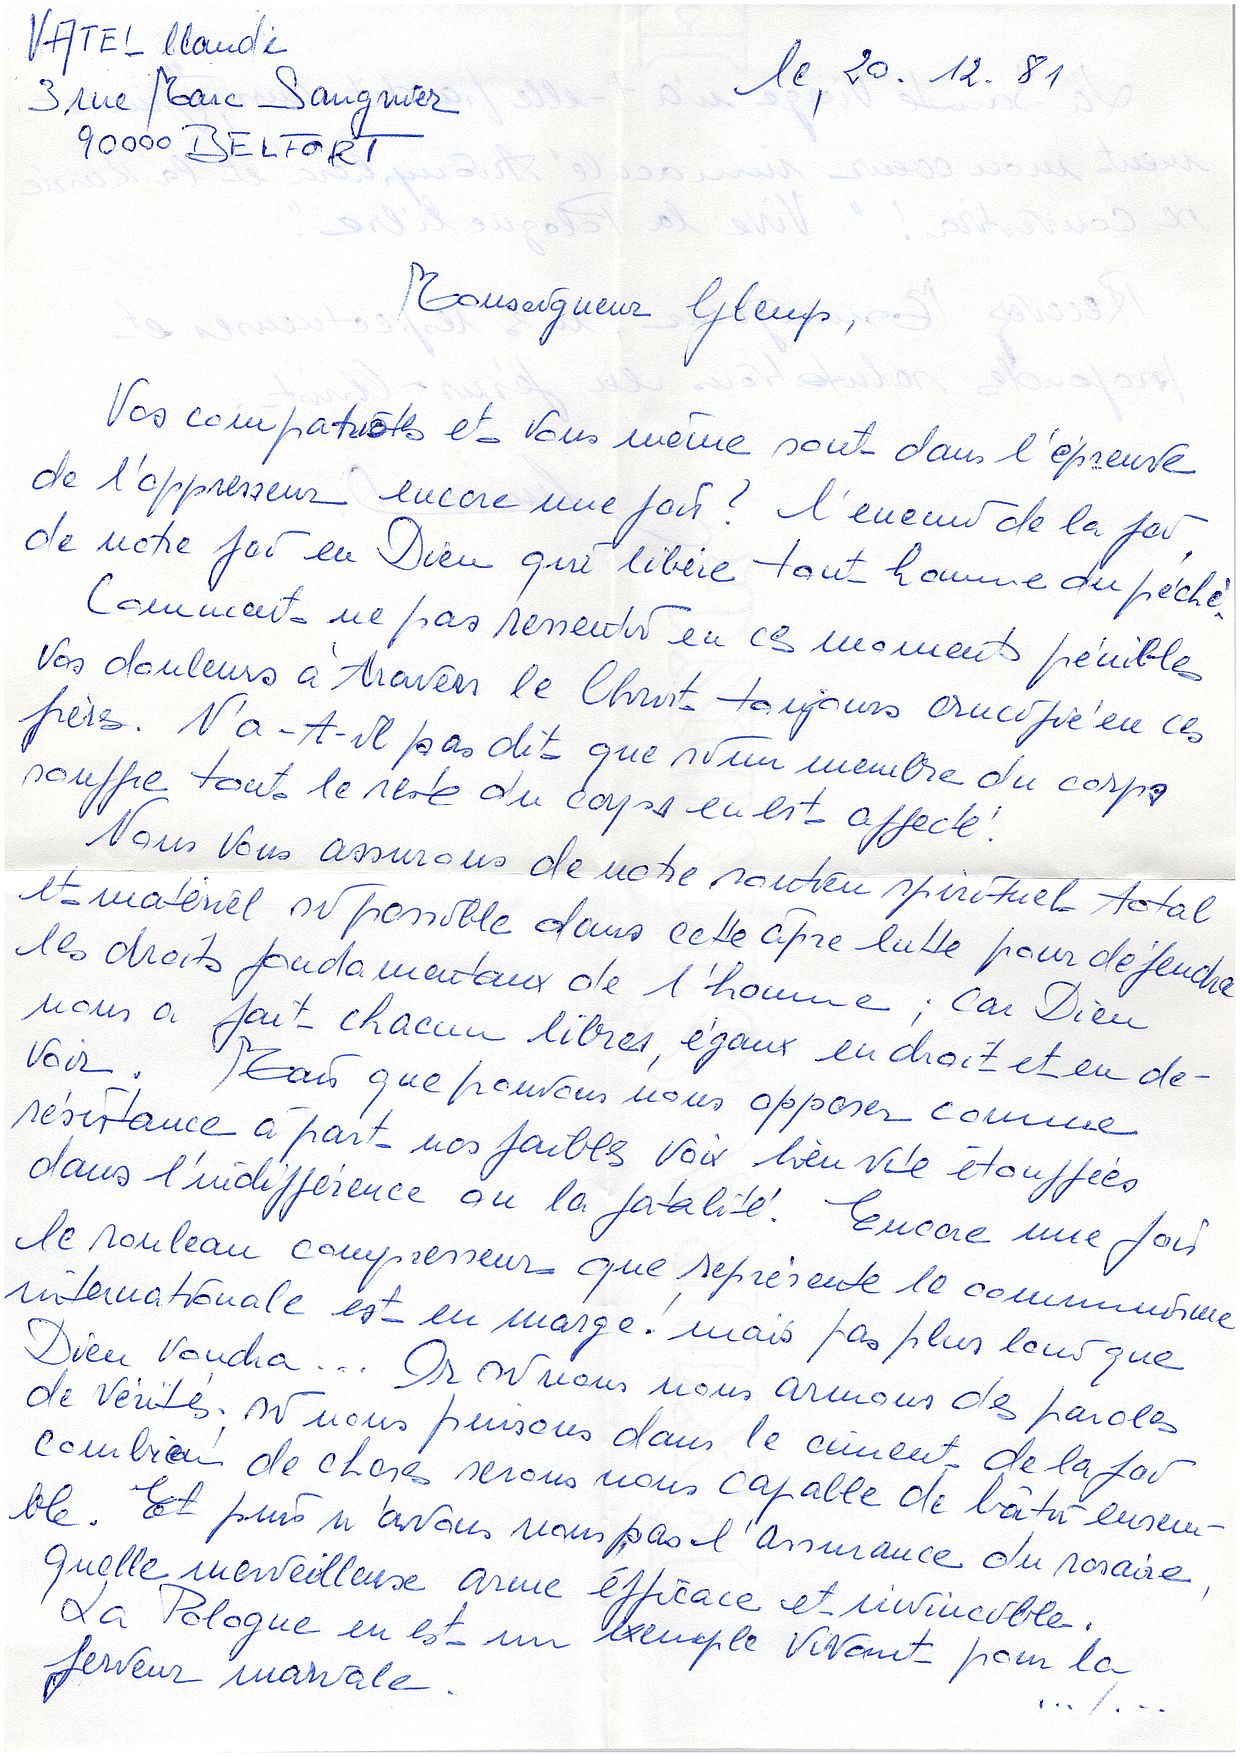 VATEL Claude
3 rue Marc Sangnier
90000 BELFORT
le, 20. 12. 81
Monseigneur Glemp,
Vos compatriotes et vous même sont dans l'épreuve
de l'oppresseur encore une fois ? l'enemi de la foi,
de notre foi en Dieu qui libère tout homme du péché.
Comment ne pas ressentir en ces moments pénibles
vos douleurs à travers le Christ toujours crucifié en ces
frères. N'a-t-il pas dit que si un membre du corps
souffre tout le reste du corps en est affecté !
Nous vous assurons de notre soutien spirituel total
et matériel si possible dans cette âpre lutte pour défendre
les droits fondamentaux de l'homme ; car Dieu
nous a fait chacun libres, égaux en droit et en de-
voir. Mais que pouvons nous opposer comme
résistance à part nos faibles voix bien vite étouffées
dans l'indifférence ou la fatalité. Encore une fois
le rouleau compresseur que représente le communisme
internationale est en marge ! mais pas plus loin que
Dieu voudra ... Or si nous nous armons des paroles
de vérités, si nous puisons dans le ciment de la foi
combien de choses serons nous capable de bâtir ensem-
ble. Et puis n'avons nous pas l'assurance du rosaire,
quelle merveilleuse arme éfficace et invincible.
La Pologne en est un exemple vivant pour la
ferveur mariale.
.../...